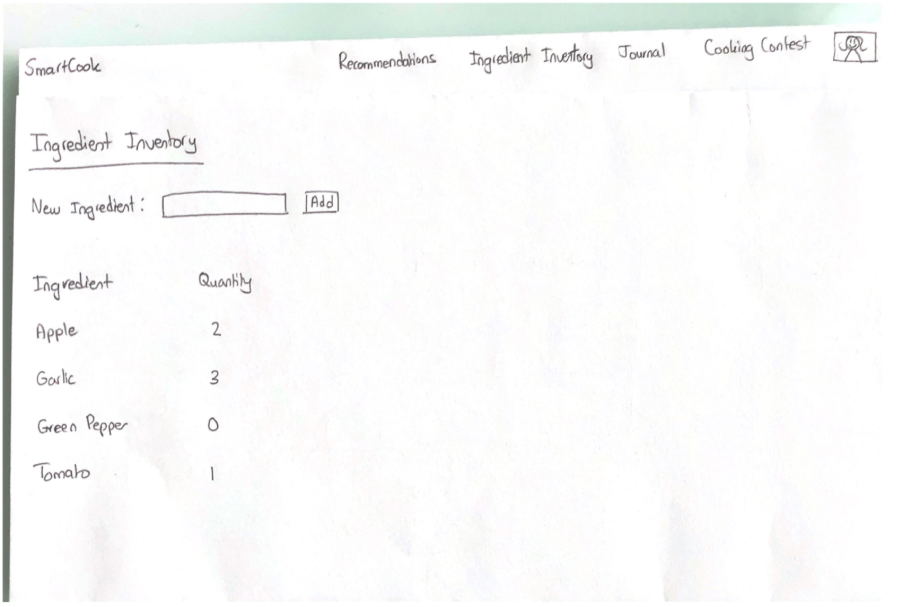 SmartCook Recommendations Ingredient Inventory Journal Cooking Contest
Ingredient Inventory
New Ingredient: Add
Ingredient Quantity
Apple 2
Garlic 3
Green Pepper 0
Tomato 1